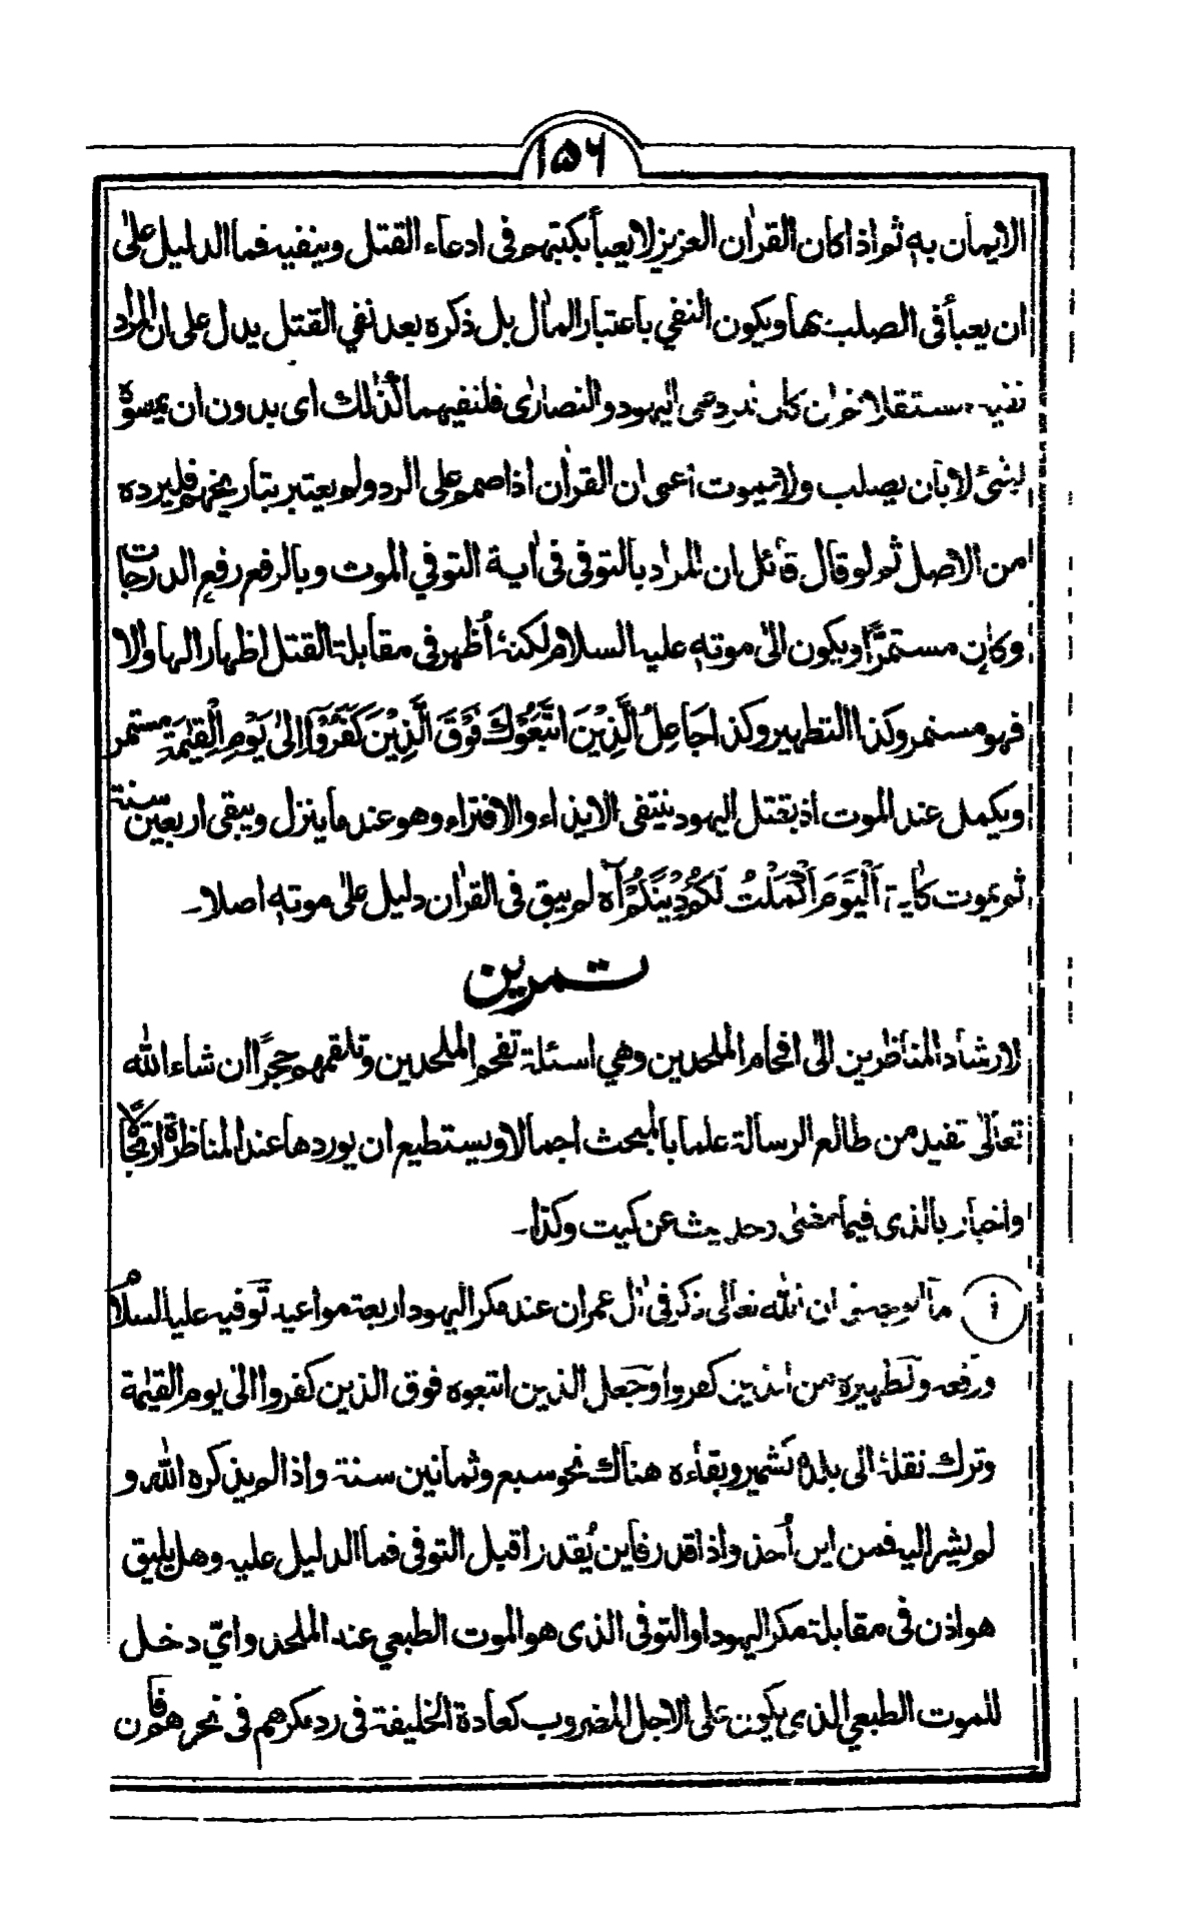 ١٥٦
الايمان به ثم اذا كان القرأن العزيز لا يعبأ بكتبهم فى ادعاء القتل وينفيه فما الدليل على
ان يعبأ فى الصلب بها ويكون النفي باعتبار المأل بل ذكره بعد نفي القتل يدل على ان المراد
نفيه مستقلا اليهود والنصارى فلنفيهما كذلك اى بدون ان يمسوه
بشئ لا بان يصلب ولا يموت اعنى ان القرأن اذا صمم على الرد ولم يعتبر بتاريخهم فليرده
من الاصل ثم لو قال قائل ان المراد بالتوفى فى أية التوفي الموت وبالرفع رفع الدرجات
وكان مستمرًّا ويكون الى موته عليه السلام لكنه أظهر فى مقابلة القتل اظهارا لها والا
فهو مستمر وكذا التطهير وكذا جَاعِلُ الَّذِيْنَ اتَّبَعُوْكَ فَوْقَ الَّذِيْنَ كَفَرُوْآ اِلىٰ يَوْمِ الْقِيٰمَةِ مستمر
ويكمل عند الموت اذ بقتل اليهود ينتفى الايذاء والافتراء وهو عند ما ينزل ويبقى اربعين سنة
ثم يموت كاية اَلْيَوْمَ اَكْمَلْتُ لَكُمْ دِيْنَكُمْ آه لم يبق فى القرأن دليل على موته اصلا۔
تمرين
لارشاد المناظرين الى افحام الملحدين وهي اسئلة تفحم الملحدين وتلقمهم حجرًا ان شاء الله
تعالى تفيد من طالع الرسالة علما بالمبحث اجمالا ويستطيع ان يوردها عند المناظرة ارتجالا
واخبار بالذى فيما مضى وحديث عن كيت وكذا۔
ما ان الله تعالى ذكر فى أل عمران عند مكر اليهود اربعة مواعيد توفيه عليه السلام
ورفعه وتطهيره من الذين كفروا وجعل الذين اتبعوه فوق الذين كفروا الى يوم القيٰمة
وترك نقله الى بلدة كشمير وبقاءه هناك نحو سبع وثمانين سنة واذا لم يذكره الله و
لم يشر اليه فمن اين أخذ واذا قدر فاين يُقدر اقبل التوفى فما الدليل عليه وهل يليق
هو اذن فى مقابلة مكر اليهود او التوفى الذى هو الموت الطبعي عند الملحد وايّ دخل
للموت الطبعي الذى يكون على الاجل المضروب كعادة الخليفة فى رد مكرهم فى نحرهم فان